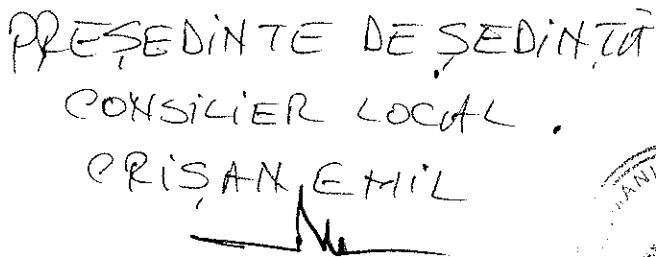 PREȘEDINTE DE ȘEDINȚĂ
CONSILIER LOCAL.
CRIȘAN EMIL